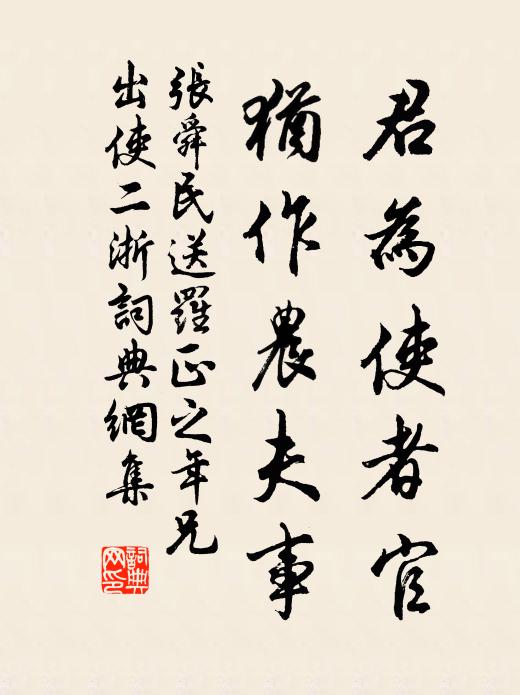 君為使者官
猶作農夫事
張舜民送羅正之年兄
出使二浙詞典網集
詞典网印